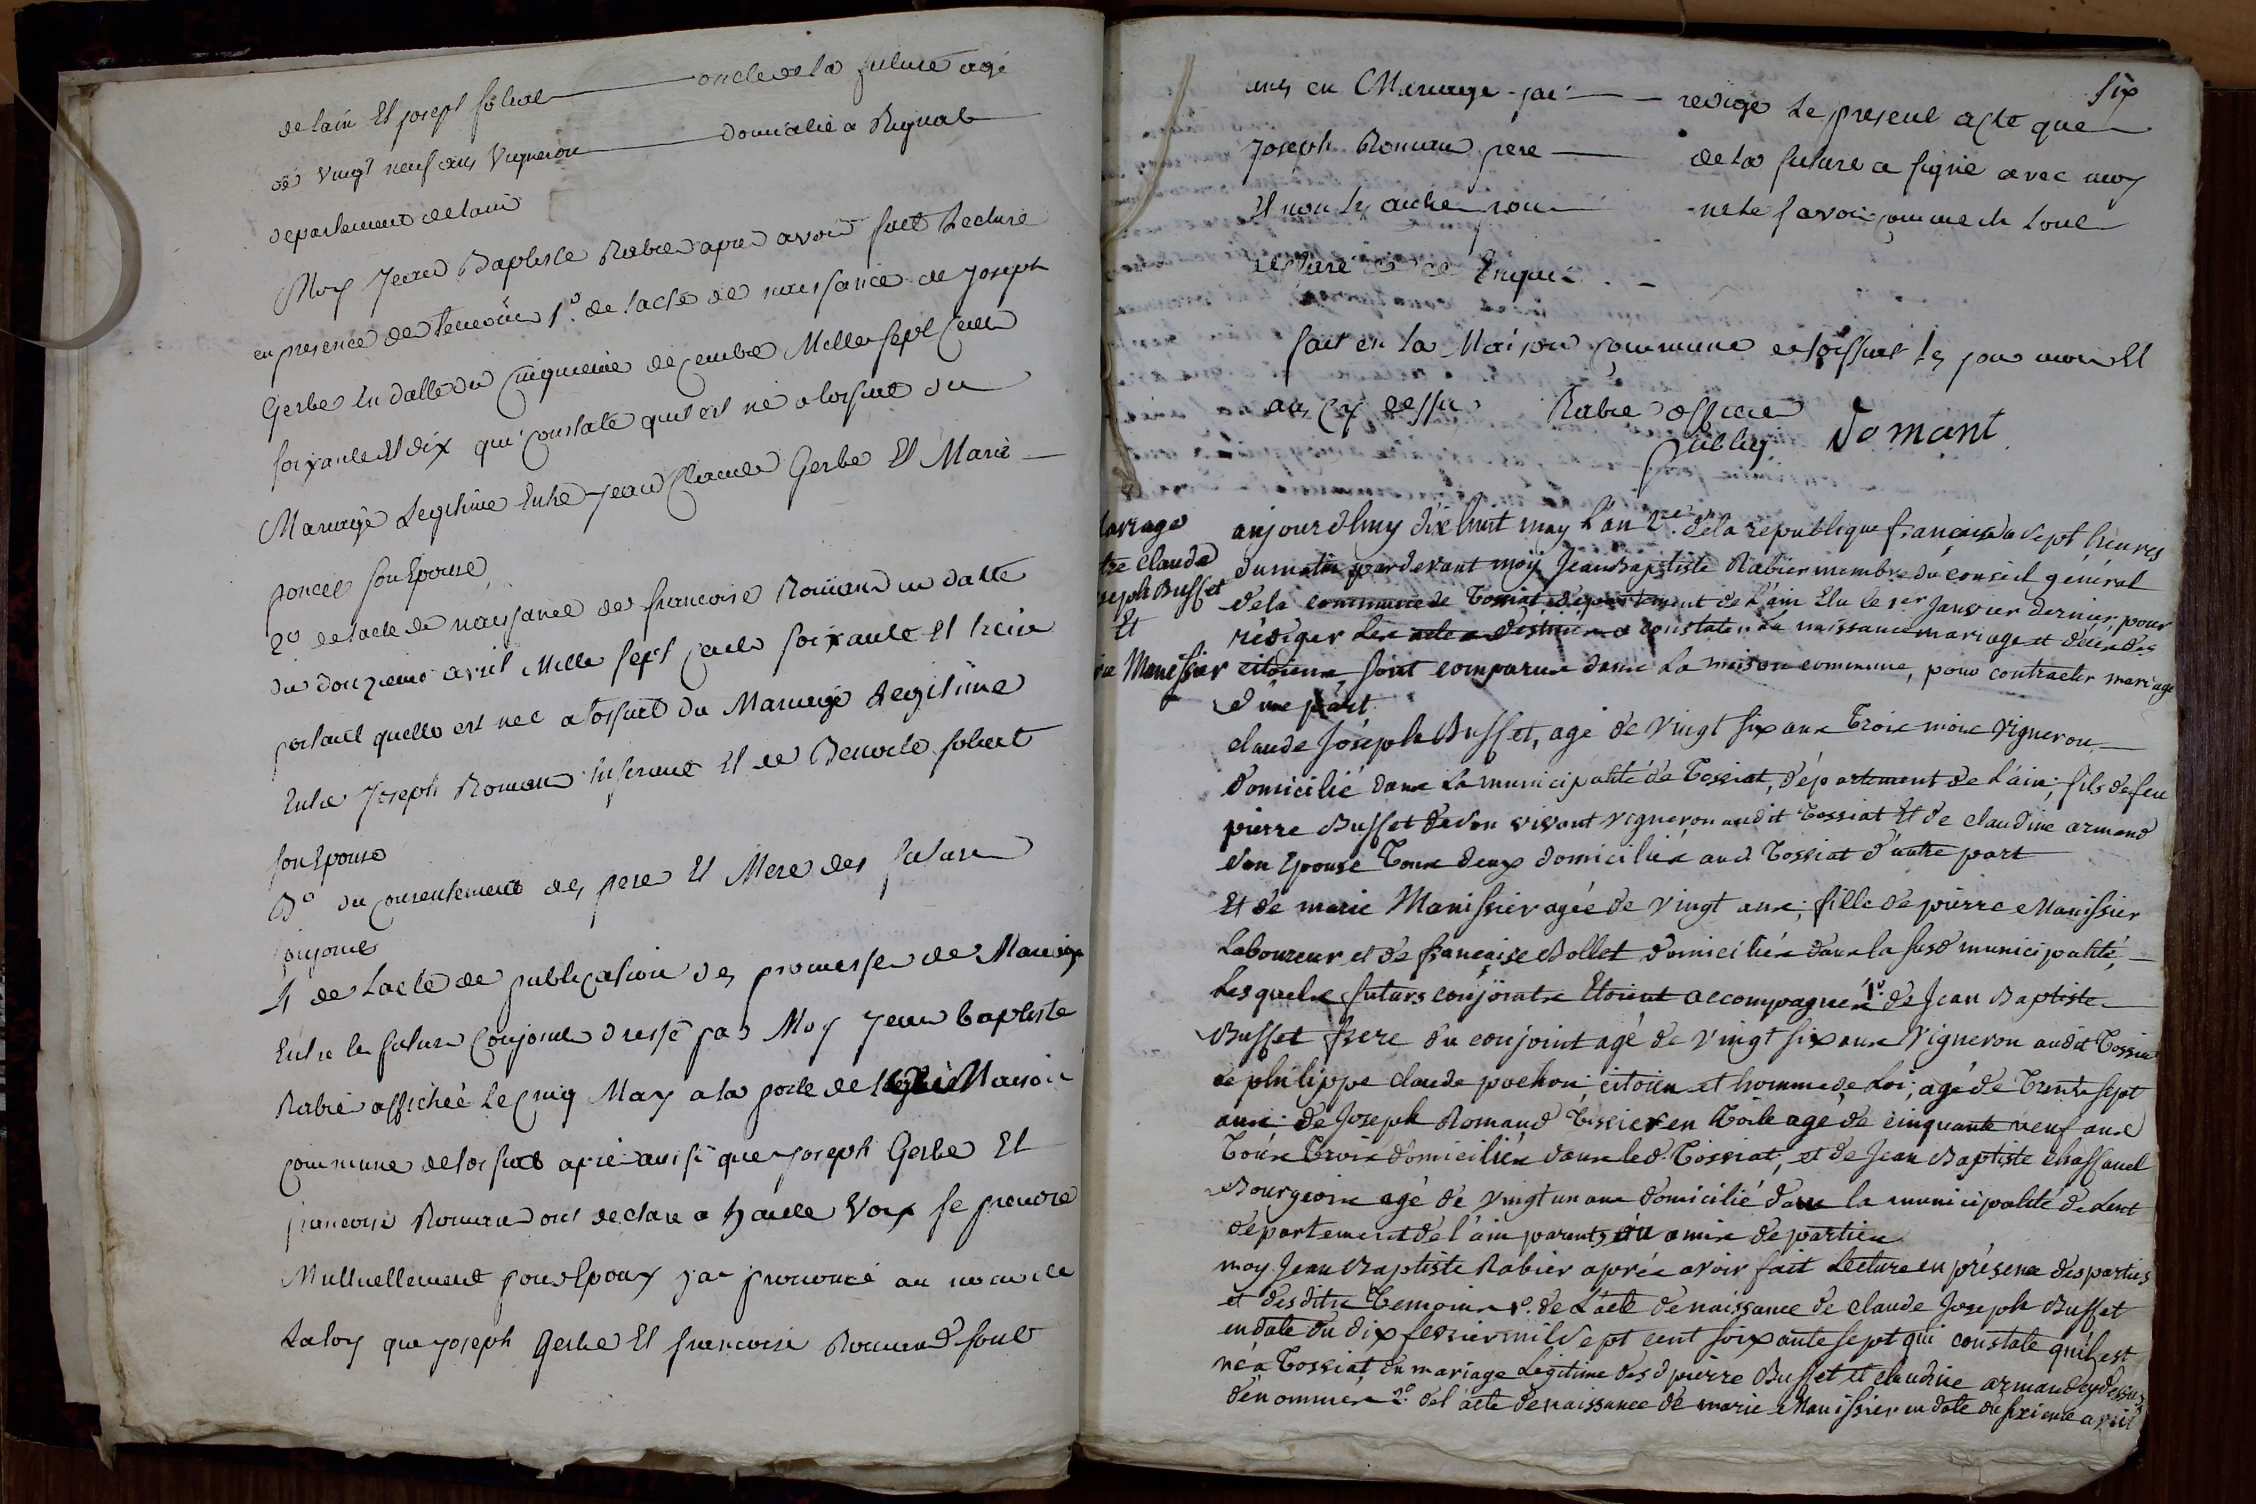 de lain Et joseph solicat oncle de la future agé
de vingt neuf ans Vigneron domicilié a Rignat
departement de lain
Moy Jean Baptiste Rabier apres avoir fait Lecture
en presence des temoins 1º. de lacte de naissance de Joseph
Gerbe En datte du Cinquieme decembre Mille sept Cents
soixante Et dix qui Constate quil est né a tossiat du
Mariage Legitime Entre Jean Claude Gerbe Et Marie
poncet son Epouse
2º de lacte de naissance de francoise Romand en datte
du douzieme avril Mille sept cents soixante Et treize
portant quelle est nee a Tossiat du Mariage Legitime
Entre Joseph Romand Et de Benoite
son Epouse
3º du consentement des pere Et Mere des future
conjoins
4 de Lacte de publication des promesses de Mariage
Entre les futurs Conjoins dressé par Moy Jean baptiste
Rabier affichée Le cinq May a la porte de Maison
commune de tossiat apres aussi que joseph Gerbe Et
francoise Romand ont declare a haute Voix se prendre
Mutuellement pour Epoux j'ai prononcé au nom de
La loy que joseph Gerbe Et francoise Romand sont
six
unis en Mariage j'ai redigé Le present acte que
Joseph Romand pere de la future a signé avec moy
Et non les autres pour ne le savoir comme ils l'ont
declaré de ce Enquis
fait en la Maison commune de tossiat les jour mois Et
an cy dessus Rabier officier
public Romant
ariage
tre claude
seph Buffet
Et
ie Manissier
aujourdhuy dixhuit may L'an 2e. de la république française a sept heures
du matin pardevant moy Jean Baptiste Rabier membre du conseil général
de la commune de Tossiat département de L'ain Elu le 1er Janvier dernier pour
rédiger les actes destinés a constater les naissances mariages et décès des
citoiens sont comparus dans La maison commune, pour contracter mariage
d'une part
claude Joseph Buffet, agé de vingt six ans Trois mois vigneron
domicilié dans La municipalité de Tossiat, département de L'ain; fils de feu
pierre Buffet de son vivant vigneron audit Tossiat Et de claudine armand
son Epouse Tous deux domiciliés aud. Tossiat d'autre part
Et de marie Manissier agée de vingt ans; fille de pierre Manissier
Laboureur et de française Bollet domiciliés dans la susd. municipalité,
Lesquels futurs conjoints Etoient accompagnés 1º. de Jean Baptiste
Buffet frere du conjoint agé de vingt six ans vigneron audit Tossiat
de philippe claude pochon; citoien et homme de Loi; agé de Trente sept
ans; de Joseph Romand Tissier en Toile agé de cinquante neuf ans
Tous Trois domiciliés dans led. Tossiat; et de Jean Baptiste chassanel
Bourgeois agé de vingt un ans domicilié dans la municipalité de Lent
département de l'ain parents ou amis de parties
moy Jean Baptiste Rabier après avoir fait Lecture en présence des parties
et desdits Temoins 1º. de L'acte de naissance de claude Joseph Buffet
en date du dix fevrier mil sept cent soixante sept qui constate quil est
né a Tossiat du mariage Légitime desd. pierre Buffet et claudine armand cy dessus
dénommés 2º. de l'acte de naissance de marie Manissier en date du sixieme avril